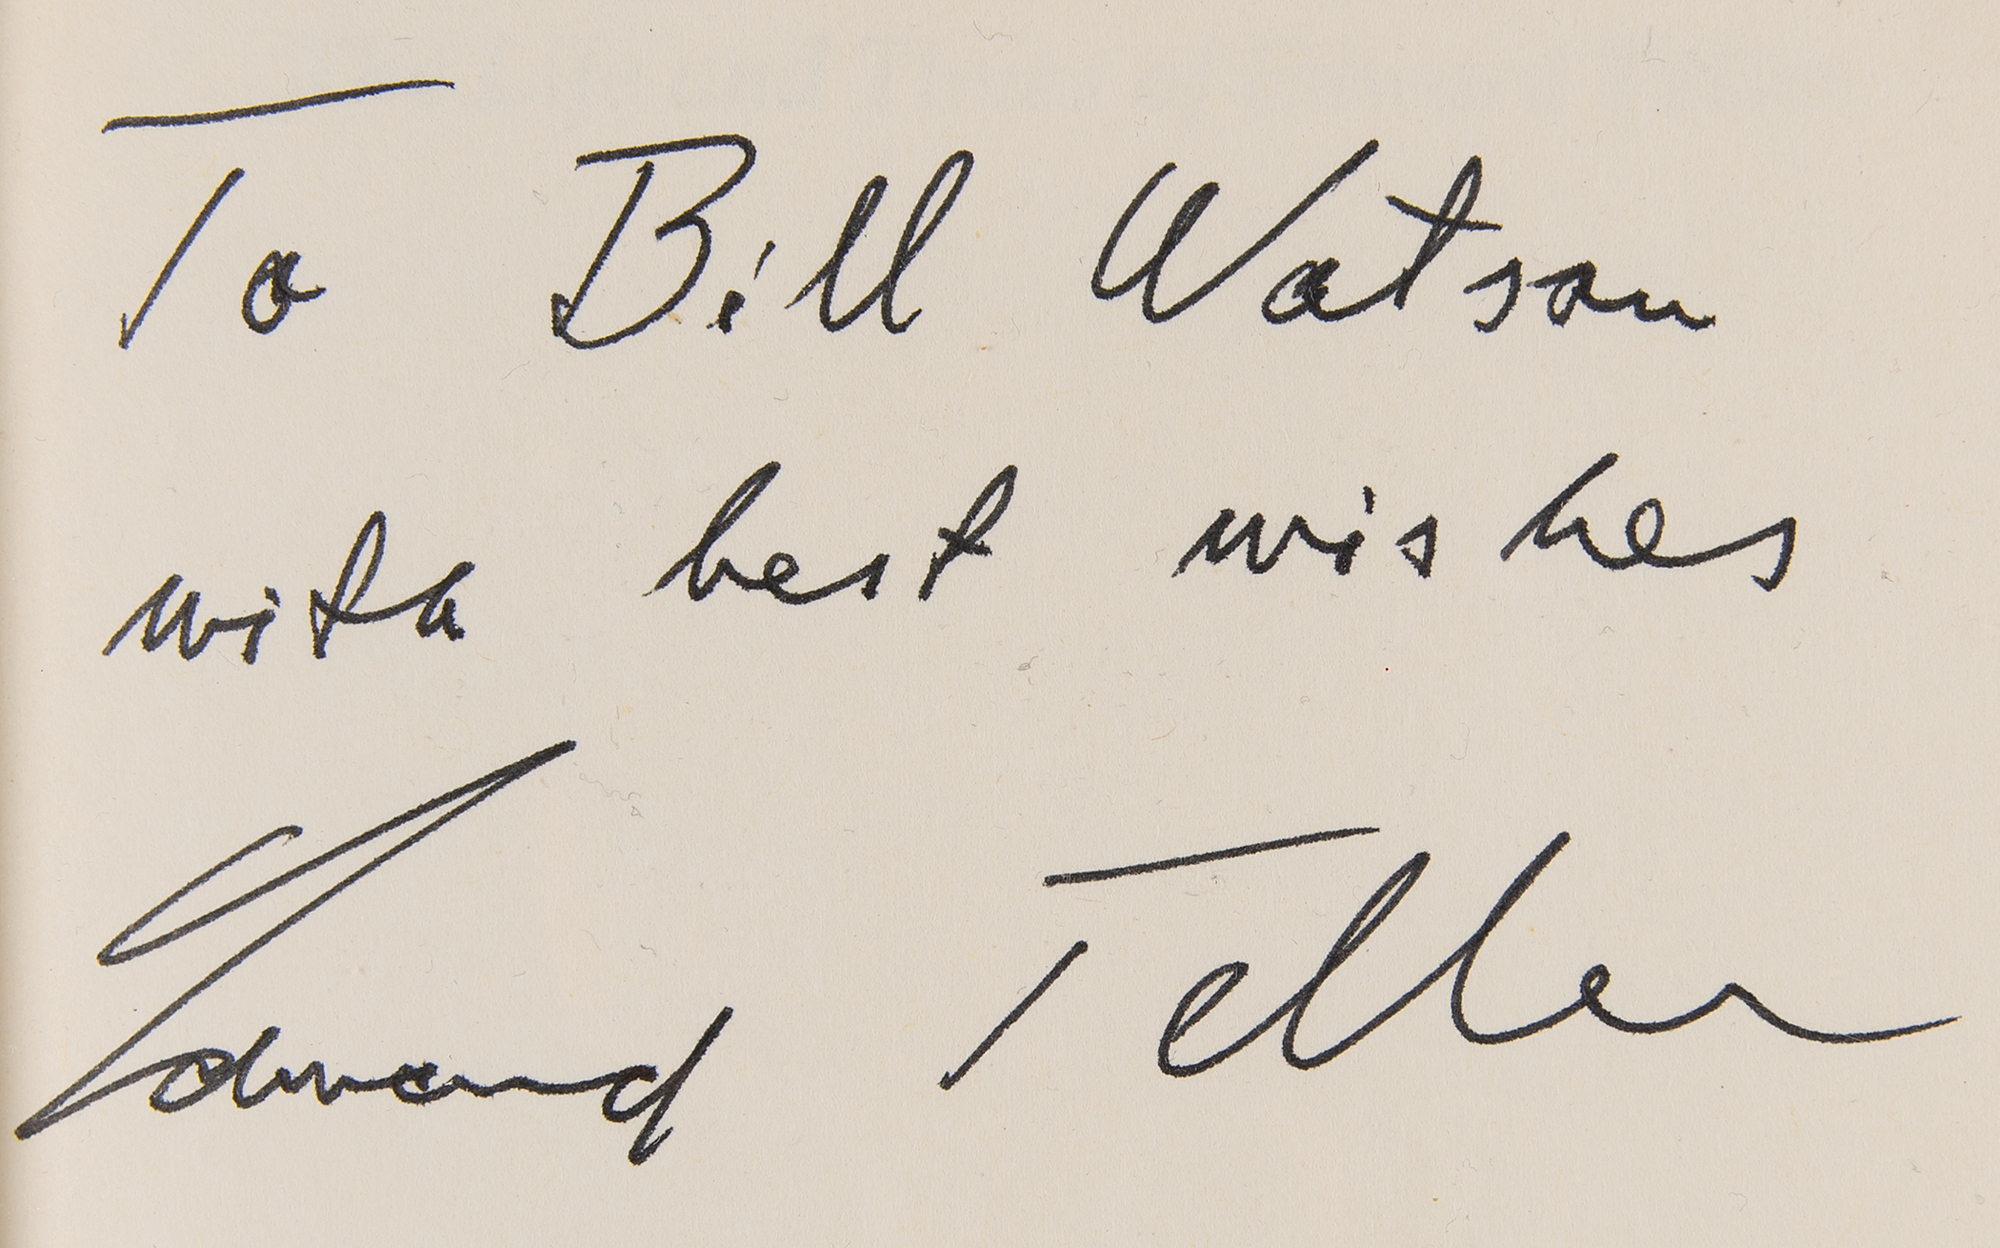 To Bill Watson
with best wishes
Edward Teller